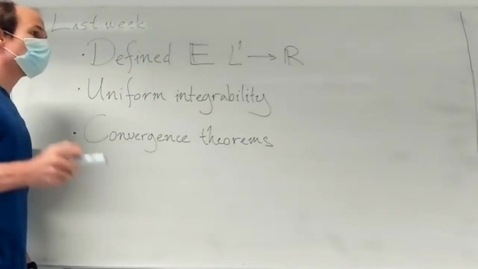 Last week
· Defined E L¹ → R
· Uniform integrability
· Convergence theorems